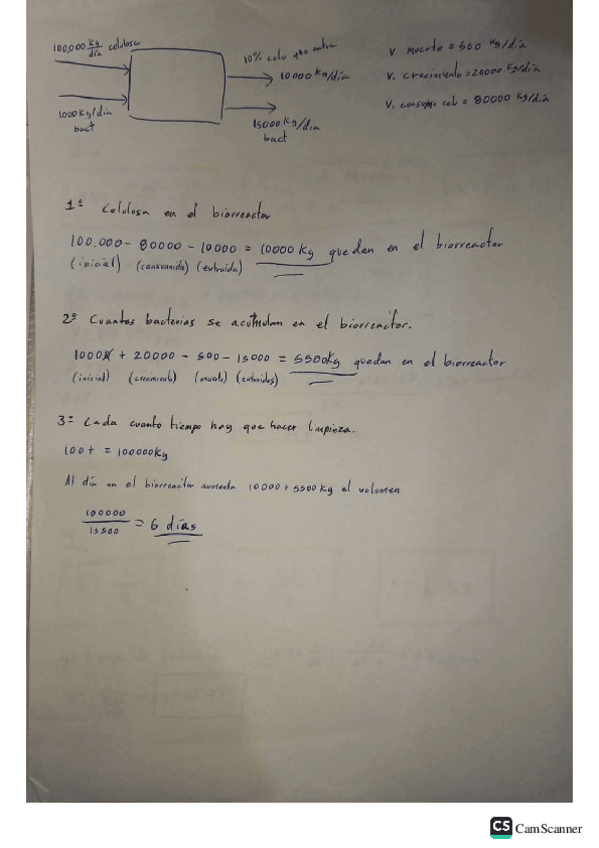 100,000 kg/día celulosa
1000 kg/día
bact
10% celu que entra
10000 kg/día
15000 kg/día
bact
v. muerte = 500 kg/día
v. crecimiento = 20000 kg/día
v. consumo cel = 80000 kg/día
1º Celulosa en el biorreactor
100.000 - 80000 - 10000 = 10000 kg quedan en el biorreactor
(inicial) (consumida) (extraída)
2º Cuantas bacterias se acumulan en el biorreactor.
1000 + 20000 - 500 - 15000 = 5500kg quedan en el biorreactor
(inicial) (crecimiento) (muerte) (extraídas)
3º Cada cuanto tiempo hay que hacer limpieza.
100t = 100000kg
Al día en el biorreactor aumenta 10000 + 5500 kg el volumen
100000/15500 = 6 días
CS CamScanner